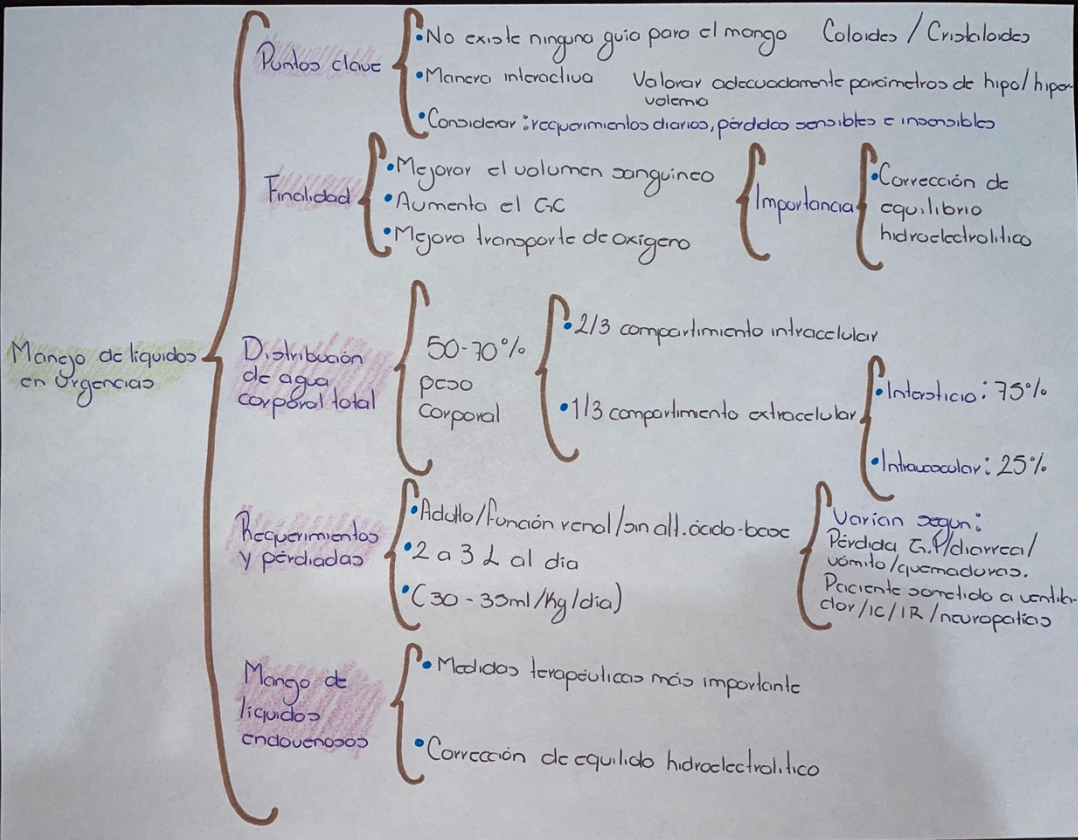 Manejo de líquidos
en Urgencias
Puntos clave
No existe ninguna guía para el manejo Coloides / Cristaloides
Manera interactiva Valorar adecuadamente parámetros de hipo/hiper-
volemia
Considerar: requerimientos diarios, pérdidas sensibles e insensibles
Finalidad
Mejorar el volumen sanguíneo
Aumenta el GC
Mejora transporte de oxígeno
Importancia
Corrección de
equilibrio
hidroelectrolitico
Distribución
de agua
corporal total
50-70%
peso
corporal
2/3 compartimiento intracelular
1/3 compartimiento extracelular
Intersticio: 75%
Intravascular: 25%
Requerimientos
y pérdiadas
Adulto/función renal/sin alt. ácido-base
2 a 3 L al día
(30-35ml/kg/día)
Varían segun:
Pérdida G.P/diarrea/
vómito/quemaduras.
Paciente sometido a ventila-
dor/IC/IR/neuropatías
Manejo de
líquidos
endovenosos
Medidas terapéuticas más importante
Corrección de equilido hidroelectrolitico